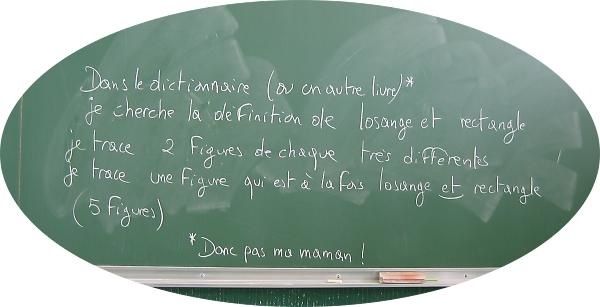 Dans le dictionnaire (ou un autre livre)*
je cherche la définition de losange et rectangle
je trace 2 figures de chaque très différentes
je trace une figure qui est à la fois losange et rectangle
(5 figures)
*Donc pas ma maman !